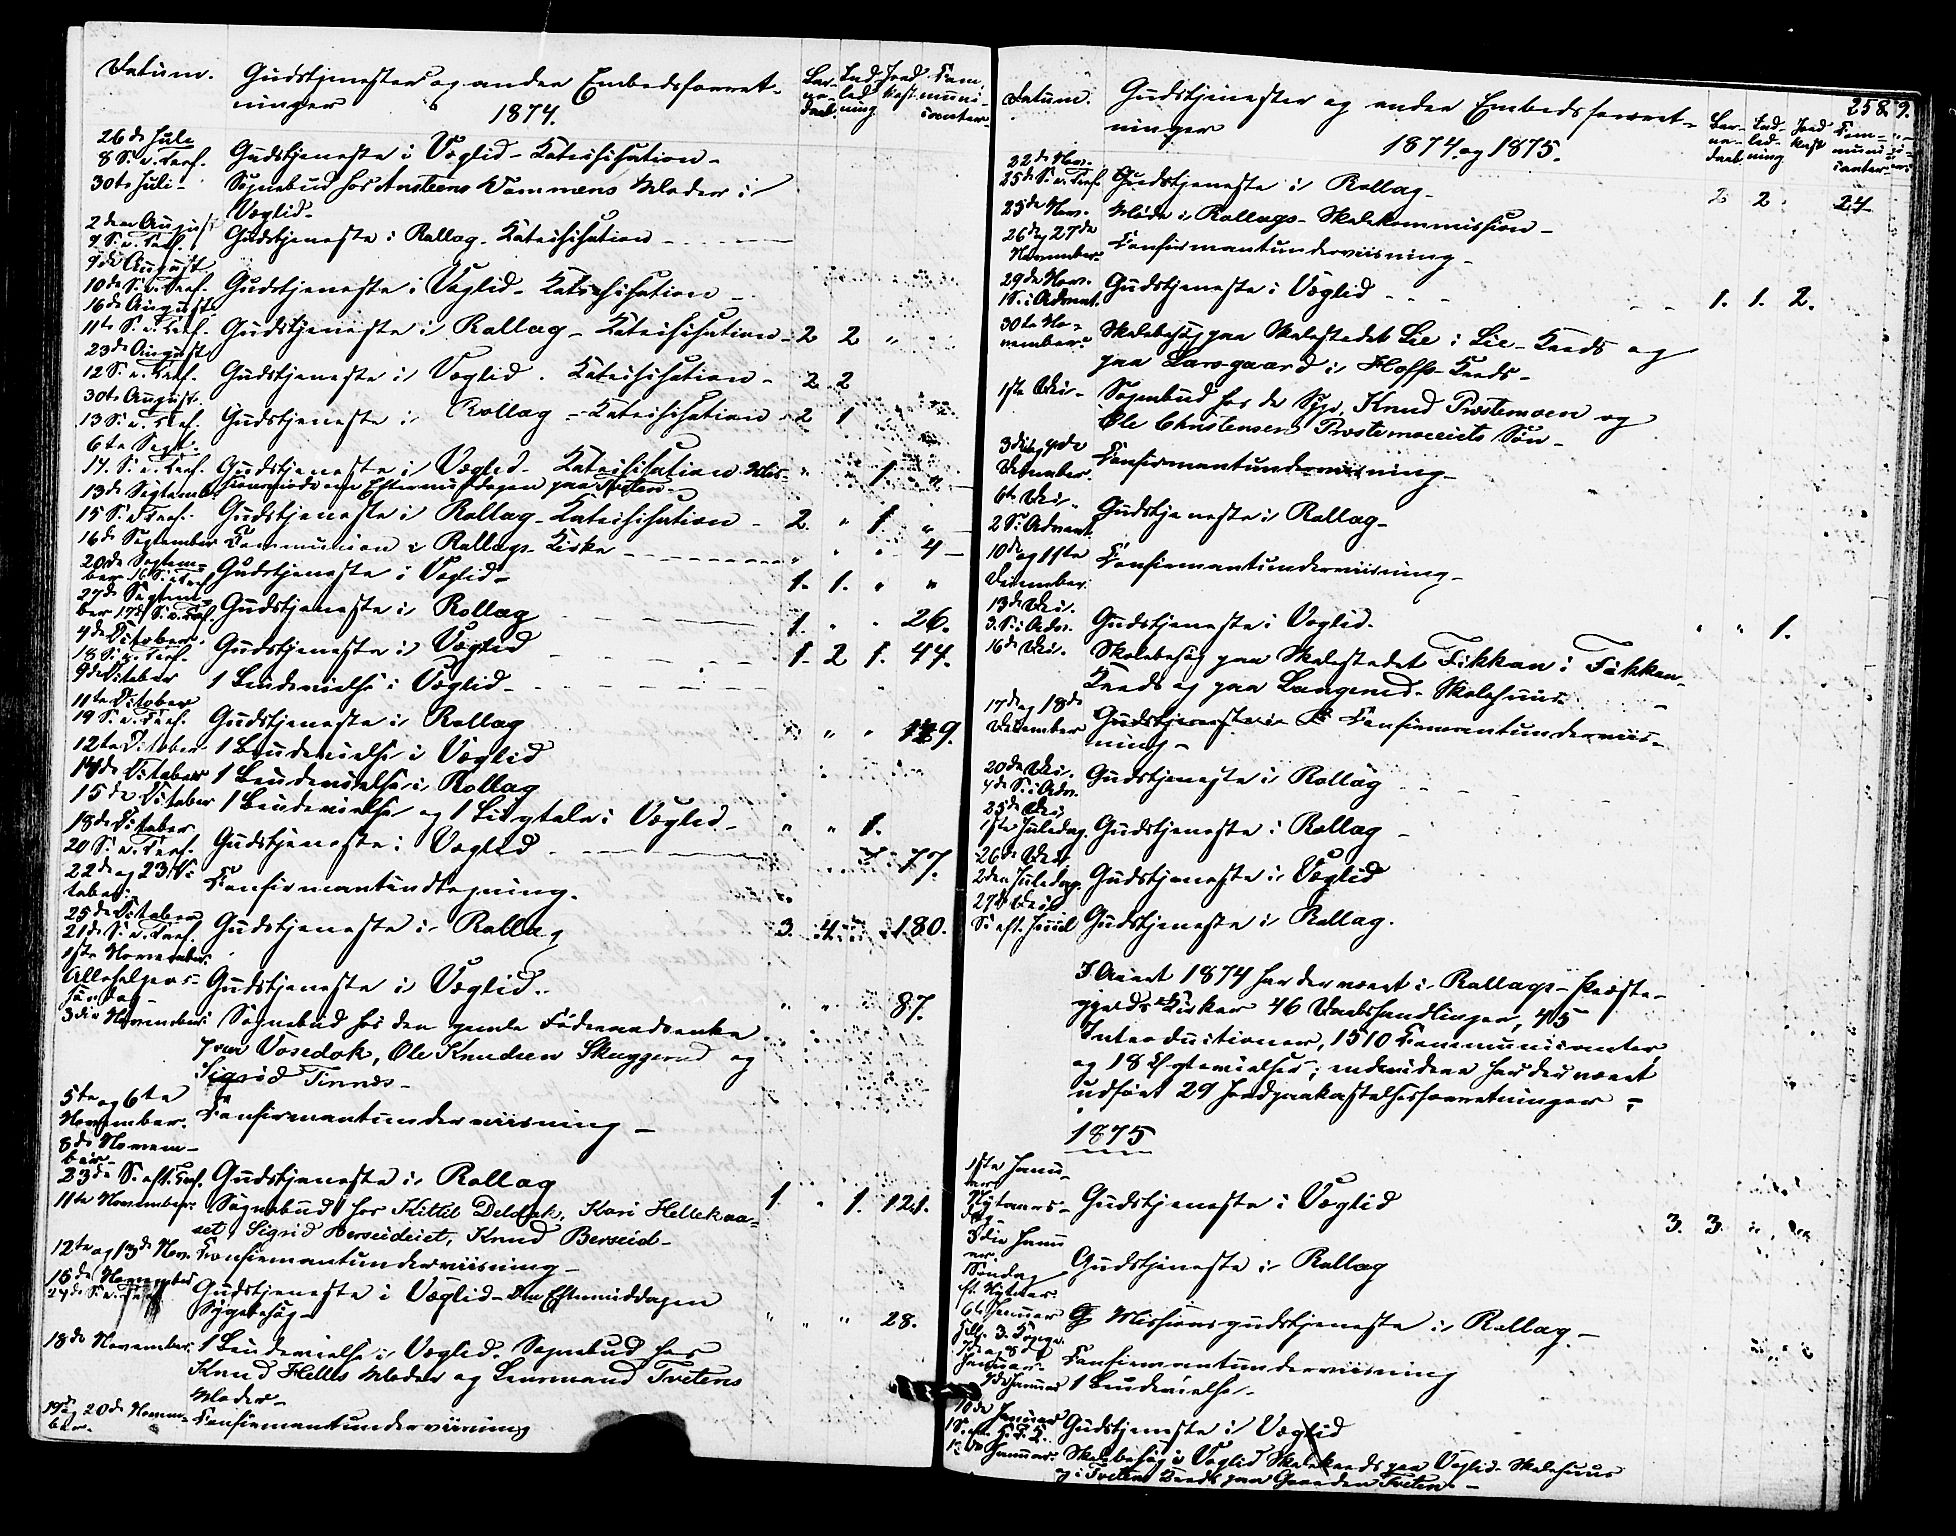 Datum. Gudstjenester og andre Embedsforret-
ninger
1874.
Bar-
ne-
daab. Ind-
led-
ning Jord
kast. Com-
muni-
canter.
26de Juli
8 S. e. Tref. Gudstjeneste i Væglid - Katechisation -
30te Juli - Sognebud hos Moder i
Væglid -
2den August
9 S. e. Tref. Gudstjeneste i Rollag - Katechisation -
9de August
10de S. e. Tref. Gudstjeneste i Væglid - Katechisation -
16de August
11te S. e. Tref. Gudstjeneste i Rollag - Katechisation - 2 2 "
23de August
12 S. e. Tref. Gudstjeneste i Væglid. Katechisation - 2 2
30te August
13 S. e. Tref. Gudstjeneste i Rollag - Katechisation - 2 1
6te Sept.
14. S. e. Tref. Gudstjeneste i Væglid - Katechisation. Mis- " " 1. "
Eftermiddagen paa Tveten -
13de September
15 S. e. Tref. Gudstjeneste i Rollag - Katechisation - 2. " 1 "
16de September Communion i Rollags Kirke - " " " 4 -
20de Septem-
ber 16 S. e. Tref. Gudstjeneste i Væglid - 1. 1. " "
27de Septem-
ber 17de S. e. Tref. Gudstjeneste i Rollag 1. " " 26.
4de October
18 S. e. Tref. Gudstjeneste i Væglid 1. 2 1. 44.
9de October 1 Brudevielse i Væglid -
11te October
19 S. e. Tref. Gudstjeneste i Rollag " " 149.
12te October 1 Brudevielse i Væglid
14de October 1 Brudevielse i Rollag
15de October 1 Brudevielse og 1 Liigtale i Væglid - " " 1.
18de October
20 S. e. Tref. Gudstjeneste i Væglid 77.
22de og 23 Oc-
tober Confirmantindtegning.
25de October
21de S. e. Tref. Gudstjeneste i Rollag 3. 4 180.
1ste November
Allehelgens-
søndag - Gudstjeneste i Væglid. " " 87.
3die November Sognebud hos den gamle Føderaadsenke
Vosedok, Ole Knudsen Skuggerud og
Sigrid Tinnes -
5te og 6te
November. Confirmantunderviisning -
8de Novem-
ber
23de S. eft. Tref. Gudstjeneste i Rollag 1 " 1. 121.
11te November Sognebud hos Kittil Deldok, Kari Hellekaa-
set, Sigrid Berseideiet, Knud Berseid -
12te og 13de Nov. Confirmantunderviisning -
15de November
24de S. e. Tref. Gudstjeneste i Væglid - Om Eftermiddagen
Sygebesøg - " " " 28.
18de November 1 Brudevielse i Væglid. Sognebud hos
Knud Helles Moder og Lensmand Tvetens
Moder -
19de og 20de Novem-
ber. Confirmantunderviisning
258.
Datum. Gudstjenester og andre Embedsforret-
ninger
1874 og 1875.
Bar-
ne-
daab. Ind-
led-
ning Jord
kast Com-
muni-
canter
22de Nov.
25de S. e. Tref. Gudstjeneste i Rollag - 2 2 24
25de Nov. Møde i Rollags - Skolekommission -
26de og 27de
November. Confirmantunderviisning -
29de Nov.
1 S. i Advent. Gudstjeneste i Væglid 1. 1. 2.
30te No-
vember. Skolebesøg paa Skolestedet Lie i Lie - Kreds og
paa Larsgaard i Hoffs - Kreds -
1ste Dec. - Sognebud hos de Syge, Knud Prestemoen og
Ole Christensen Prestemoeiets Søn -
3die og 4de
December Confirmantunderviisning -
6te Dec. -
2 S. i Advent Gudstjeneste i Rollag -
10de og 11te
December Confirmantunderviisning -
13de Dec.
3. S. i Adv. Gudstjeneste i Væglid. " " 1.
16de Dec. Skolebesøg paa Skolestedet Fikkan i Fikkan-
Kreds og paa Langerud - Skolehuus
17de og 18de
December Gudstjeneste i R Confirmantunderviis-
ning -
20de Dec.
4de S. i Adv. Gudstjeneste i Rollag
25de Dec.
1ste Juledag Gudstjeneste i Rollag -
26de Dec.
2den Juledag. Gudstjeneste i Væglid
27de Dec.
S. eft. Juul Gudstjeneste i Rollag.
I Aaret 1874 har der været i Rollags - Præste-
gjelds Kirker 46 Daabshandlinger, 45
Introductioner, 1510 Communicanter
og 18 Ægtevielser; endvidere har der været
udført 29 Jordpaakastelsesforretninger -
1875
1ste Janu-
ar
Nytaars-
dag - Gudstjeneste i Væglid 3. 3. " "
3die Janu
ar
Søndag
eft. Nytaar. Gudstjeneste i Rollag
6te Januar
Hell. 3. Konge. G Missionsgudstjeneste i Rollag -
7de og 8de
Januar Confirmantunderviisning
9de Januar 1 Brudevielse -
10de Januar
1 S. eft. H. 3. K. Gudstjeneste i Væglid
Januar. Skolebesøg i Væglid Skolekreds paa Væglid - Skolehuus
og i Tveten Kreds paa Gaarden Tveten -